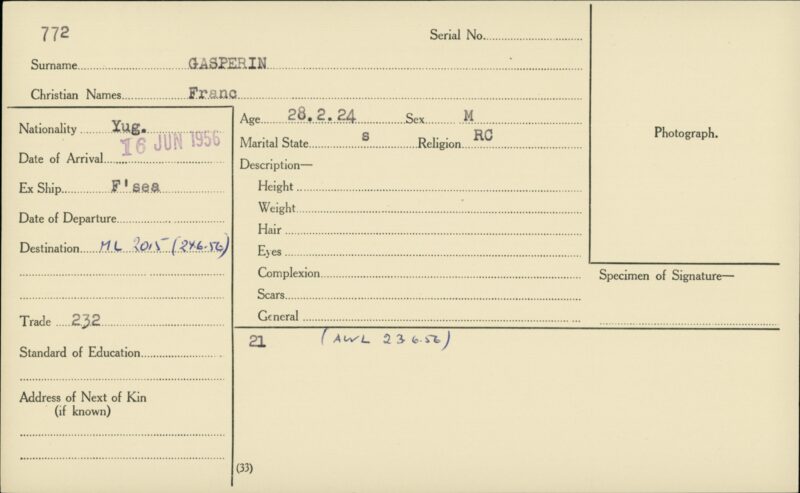 772
Serial No.
Surname GASPERIN
Christian Names Franc
Nationality Yug.
Date of Arrival 16 JUN 1956
Ex Ship F'sea
Date of Departure
Destination ML 2015 (24.6.56)
Trade 232
Standard of Education
Address of Next of Kin
(if known)
Age 28.2.24 Sex M
Marital State s Religion RC
Description—
Height
Weight
Hair
Eyes
Complexion
Scars
General
21 (AWL 23 6.56)
(33)
Photograph.
Specimen of Signature—